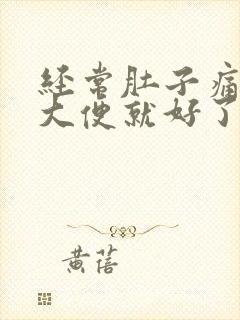 经常肚子痛
大便就好了
黄蓓